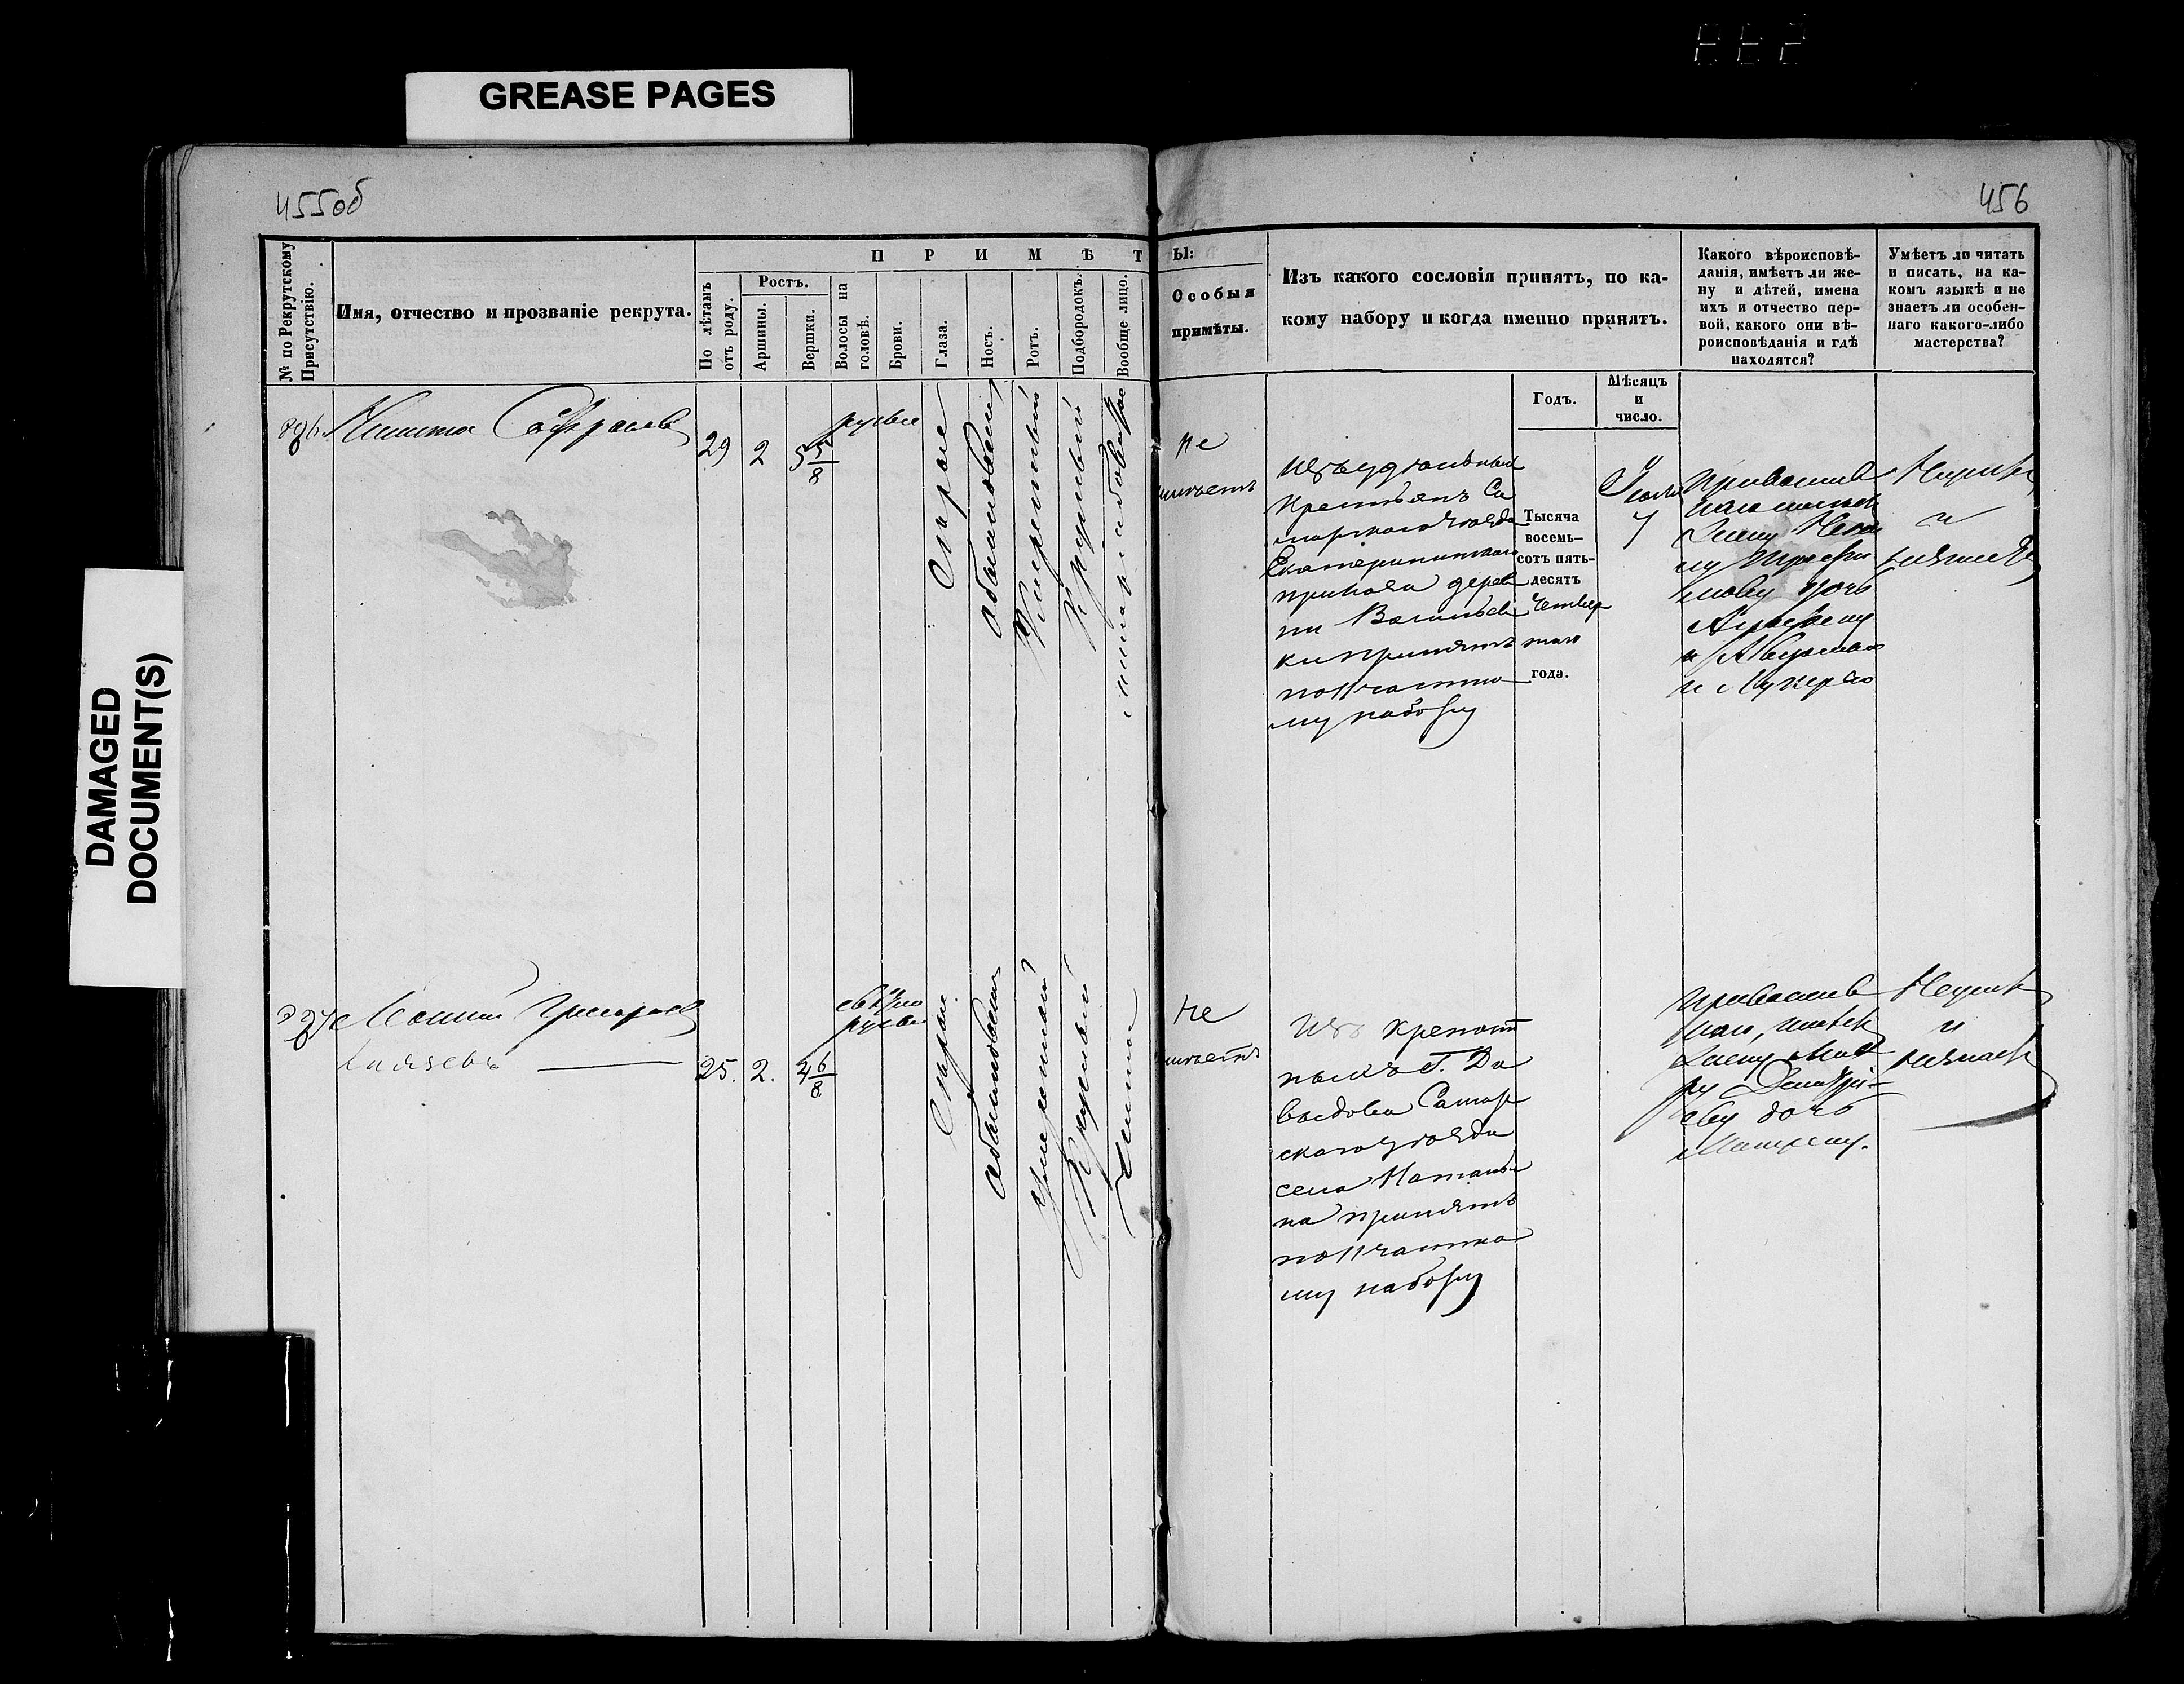 GREASE PAGES
DAMAGED
DOCUMENT(S)
455об
456
№ по Рекрутскому
Присутствію.
Имя, отчество и прозваніе рекрута.
П Р И М Ѣ Т
Ы:
По лѣтамъ
отъ роду.
Ростъ.
Аршины.
Вершки.
Волосы на
головѣ.
Брови.
Глаза.
Носъ.
Ротъ.
Подбородокъ.
Вообще лицо.
Особыя
примѣты.
Изъ какого сословія принятъ, по ка-
кому набору и когда именно принятъ.
Годъ.
Мѣсяцъ
и
число.
Какого вѣроисповѣ-
данія, имѣетъ ли же-
ну и дѣтей, имена
ихъ и отчество пер-
вой, какого они вѣ-
роисповѣданія и гдѣ
находятся?
Умѣетъ ли читать
и писать, на ка-
комъ языкѣ и не
знаетъ ли особен-
наго какого-либо
мастерства?
896.
Никита
29
2
5 5/8
русые
Сѣрые
обыкновенный
Умеренный
Круглый
не
имѣетъ
Изъ удѣльныхъ
крестьянъ Са
марского уѣзда
Екатерининского
приказа дерев
ни Васильев
ки принятъ
по 11 частно
му набору
Тысяча
восемь-
сотъ пять-
десятъ
четвер
таго
года.
Іюля
7
Православ
наго имеетъ
жену
дочь
и
и Лукерью
и
897
Григорьев
Князевъ
25.
2.
4 6/8
светло
русые
Сѣрые
обыкновенный
умеренный
Круглый
Чистое
Не
имѣетъ
Изъ крепост
ныхъ Г. Да
выдова Самар
скаго уѣзда
села Натальи
на принятъ
по 11 частно
му набору
Православ
наго, имеетъ
жену
дочь
Матрену.
и